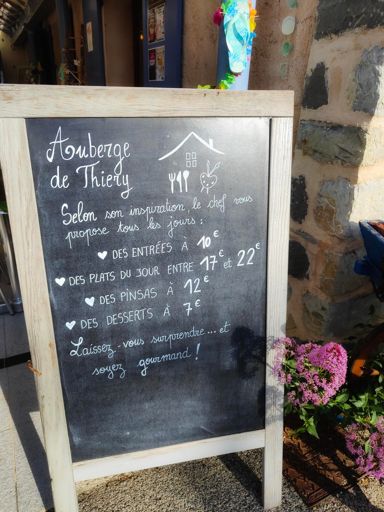 Auberge
de Thiery
Selon son inspiration, le chef vous
propose tous les jours :
DES ENTRÉES À 10€
DES PLATS DU JOUR ENTRE 17€ et 22€
DES PINSAS À 12€
DES DESSERTS À 7€
Laissez-vous surprendre... et
soyez gourmand !